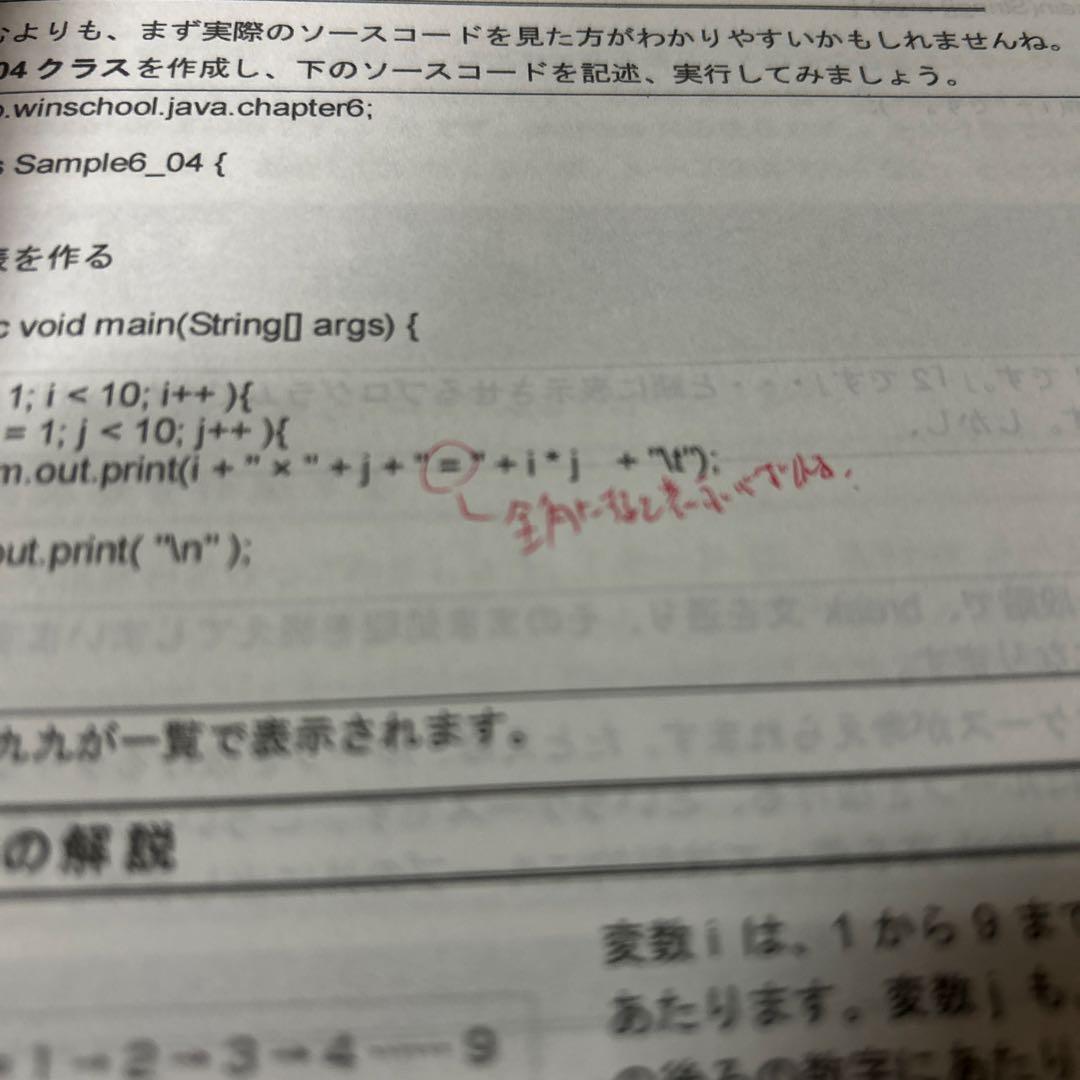 よりも、まず実際のソースコードを見た方がわかりやすいかもしれませんね。
04 クラスを作成し、下のソースコードを記述、実行してみましょう。
.winschool.java.chapter6;
s Sample6_04 {
表を作る
c void main(String[] args) {
1; i < 10; i++ ){
= 1; j < 10; j++ ){
m.out.print(i + " × " + j + " = " + i * j + "\t");
全角に
out.print( "\n" );
九九が一覧で表示されます。
の解説
変数 i は、1 から 9 まで
あたります。変数 j も、
の後ろの数字にあたり
1→2→3→4……9